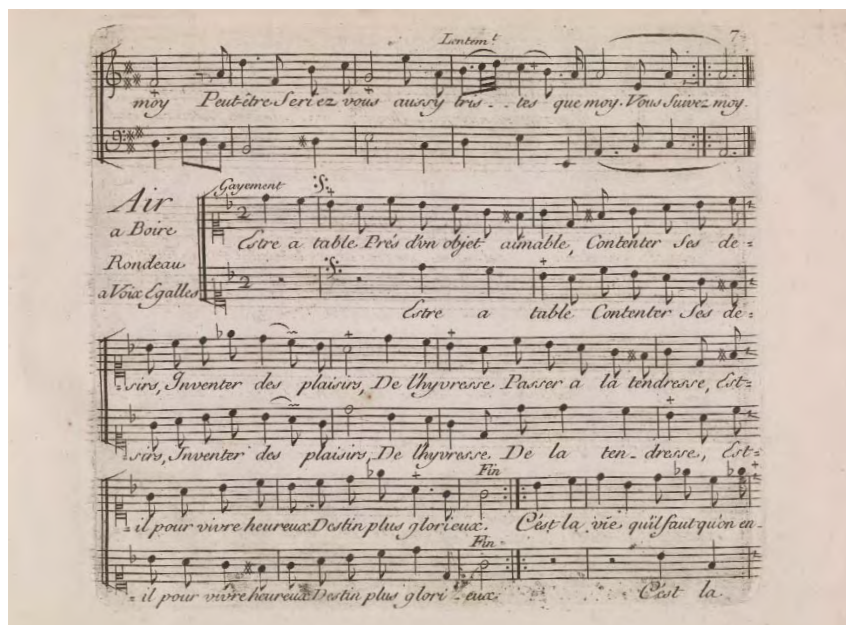 Lentem.t 7
moy Peut-être Seriez vous aussy tris-.tes que moy. Vous Suivez moy.
Air
a Boire
Rondeau
a Voix Egalles
Gayement
2
Estre a table Prés d'vn objet aimable, Contenter Ses de=
2
Estre a table Contenter Ses de=
=sirs, Inventer des plaisirs, De l'hyvresse Passer a la tendresse, Est=
=sirs, Inventer des plaisirs, De l'hyvresse De la ten-dresse, Est=
Fin
=il pour vivre heureux Destin plus glorieux. C'est la vie qu'il faut qu'on en-
Fin
=il pour vivre heureux Destin plus glori-eux. C'est la